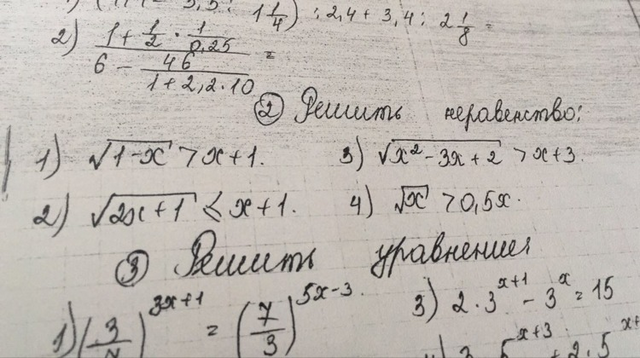 1 1/4) : 2,4 + 3,4 : 2 1/8 =
2) (1 + 1/2 · 1/0,25) / (6 - 46/(1 + 2,2·10)) =
② Решить неравенство:
1) √(1-x) > x+1. 3) √(x² - 3x + 2) > x+3.
2) √(2x+1) ≤ x+1. 4) √x > 0,5x.
③ Решить уравнение:
1) (3/7)^(3x+1) = (7/3)^(5x-3) 3) 2·3^(x+1) - 3^x = 15